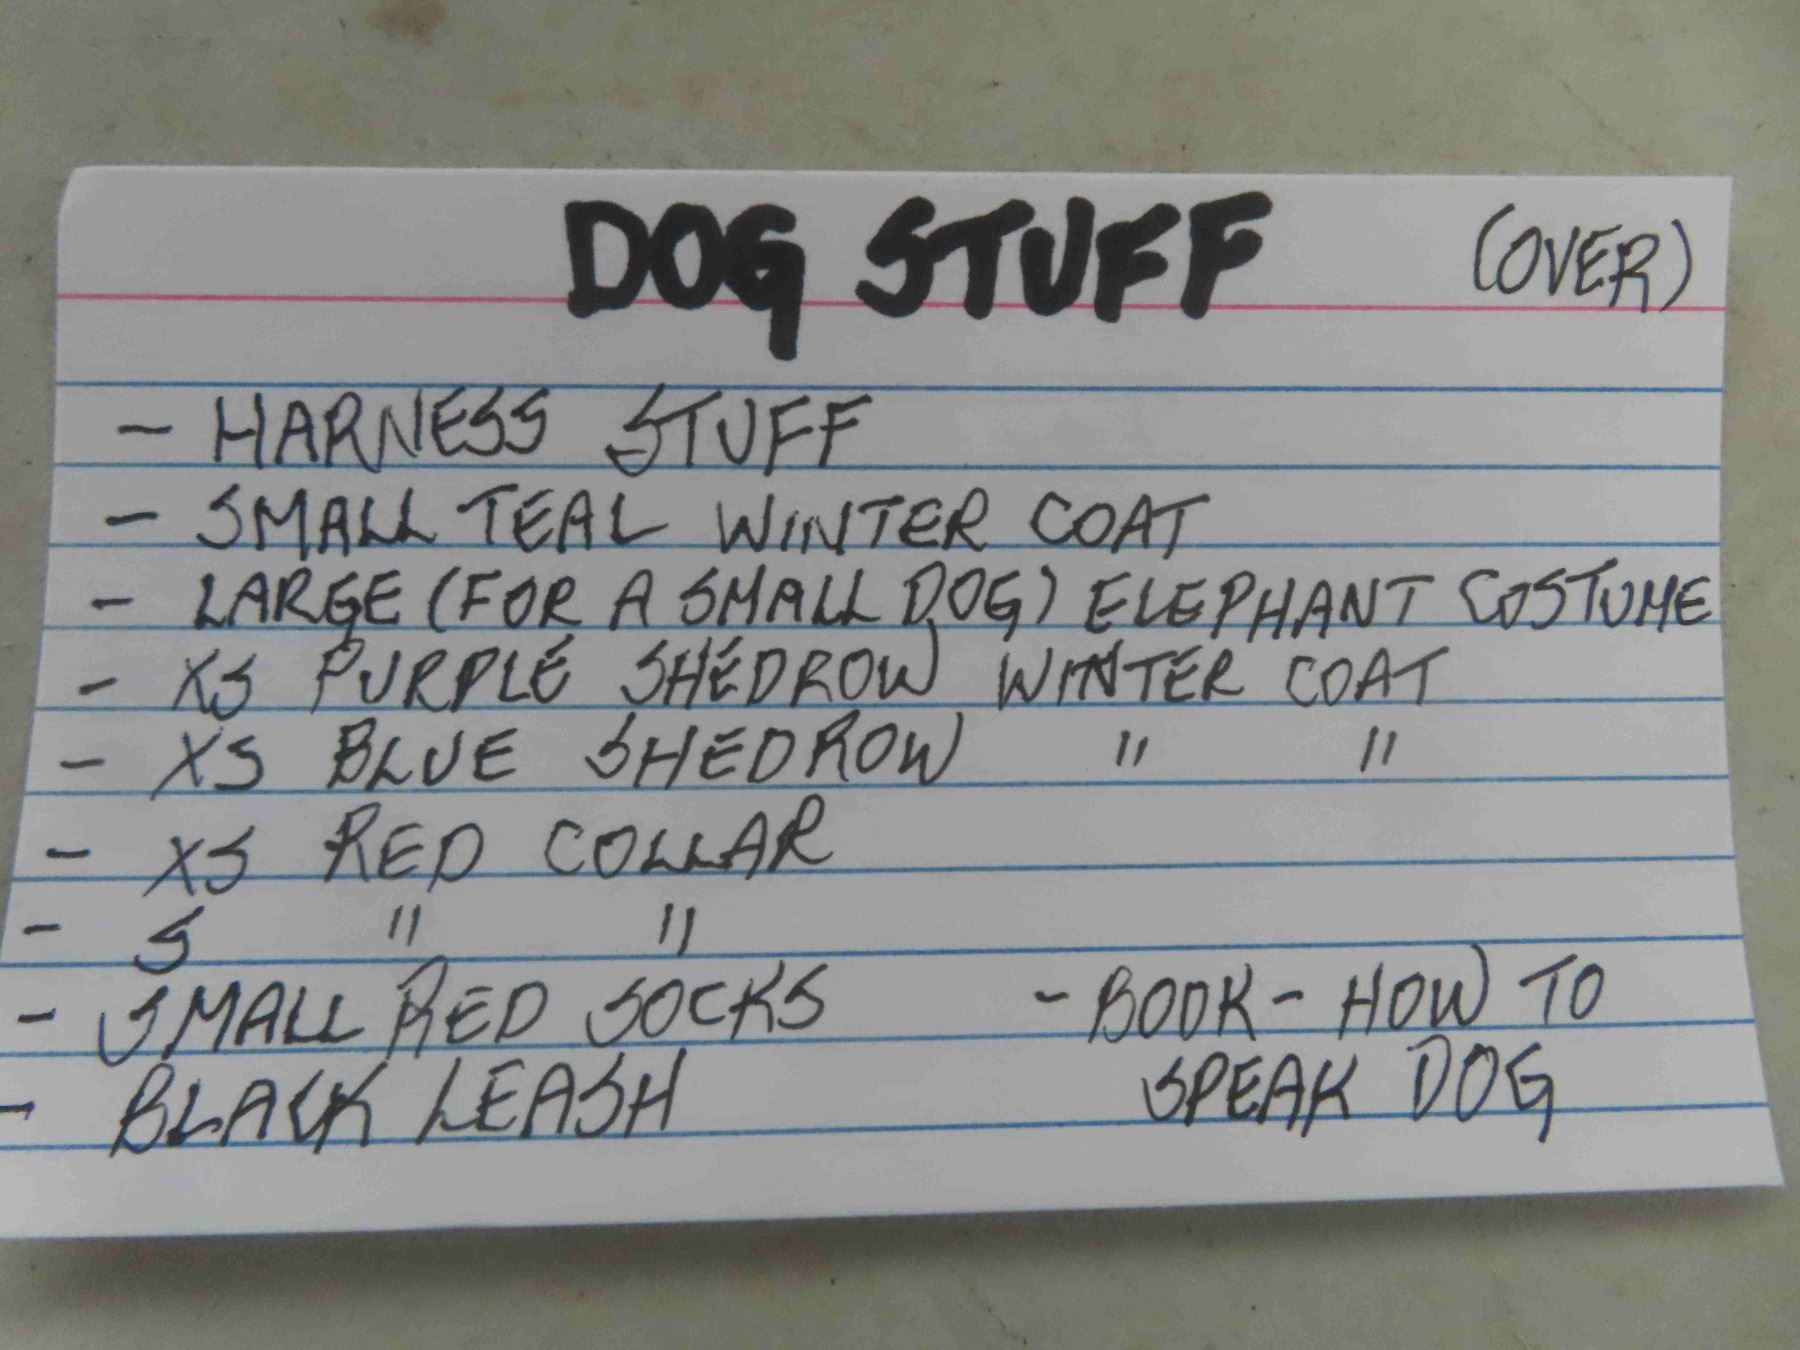 DOG STUFF (OVER)
- HARNESS STUFF
- SMALL TEAL WINTER COAT
- LARGE (FOR A SMALL DOG) ELEPHANT COSTUME
- XS PURPLE SHEDROW WINTER COAT
- XS BLUE SHEDROW " "
- XS RED COLLAR
- S " "
- SMALL RED SOCKS
- BLACK LEASH
- BOOK - HOW TO
SPEAK DOG